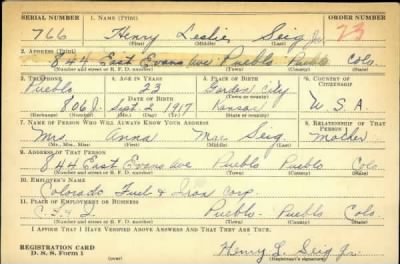 SERIAL NUMBER 1. NAME (Print) ORDER NUMBER
766 Henry Leslie Seig Jr. 
(First) (Middle) (Last)
2. ADDRESS (Print)
844 East Evans Ave Pueblo Pueblo Colo.
(Number and street or R. F. D. number) (Town) (County) (State)
3. TELEPHONE 4. AGE IN YEARS 5. PLACE OF BIRTH 6. COUNTRY OF CITIZENSHIP
Pueblo 23 Garden City
(Town)
DATE OF BIRTH
806J. Sept 2 1917 Kansas U S A
(Mo.) (Day) (Yr.) (State or country)
7. NAME OF PERSON WHO WILL ALWAYS KNOW YOUR ADDRESS 8. RELATIONSHIP OF THAT PERSON
Mrs. Anna Mae Seig Mother
(Mr., Mrs., Miss) (First) (Middle) (Last)
9. ADDRESS OF THAT PERSON
844 East Evans Ave Pueblo Pueblo Colo.
(Number and street or R. F. D. number) (Town) (County) (State)
10. EMPLOYER'S NAME
Colorado Fuel & Iron Corp.
11. PLACE OF EMPLOYMENT OR BUSINESS
C. F. & I Pueblo Pueblo Colo.
(Number and street or R. F. D. number) (Town) (County) (State)
I AFFIRM THAT I HAVE VERIFIED ABOVE ANSWERS AND THAT THEY ARE TRUE.
REGISTRATION CARD
D. S. S. Form 1 Henry L. Seig Jr.
(Registrant's signature)